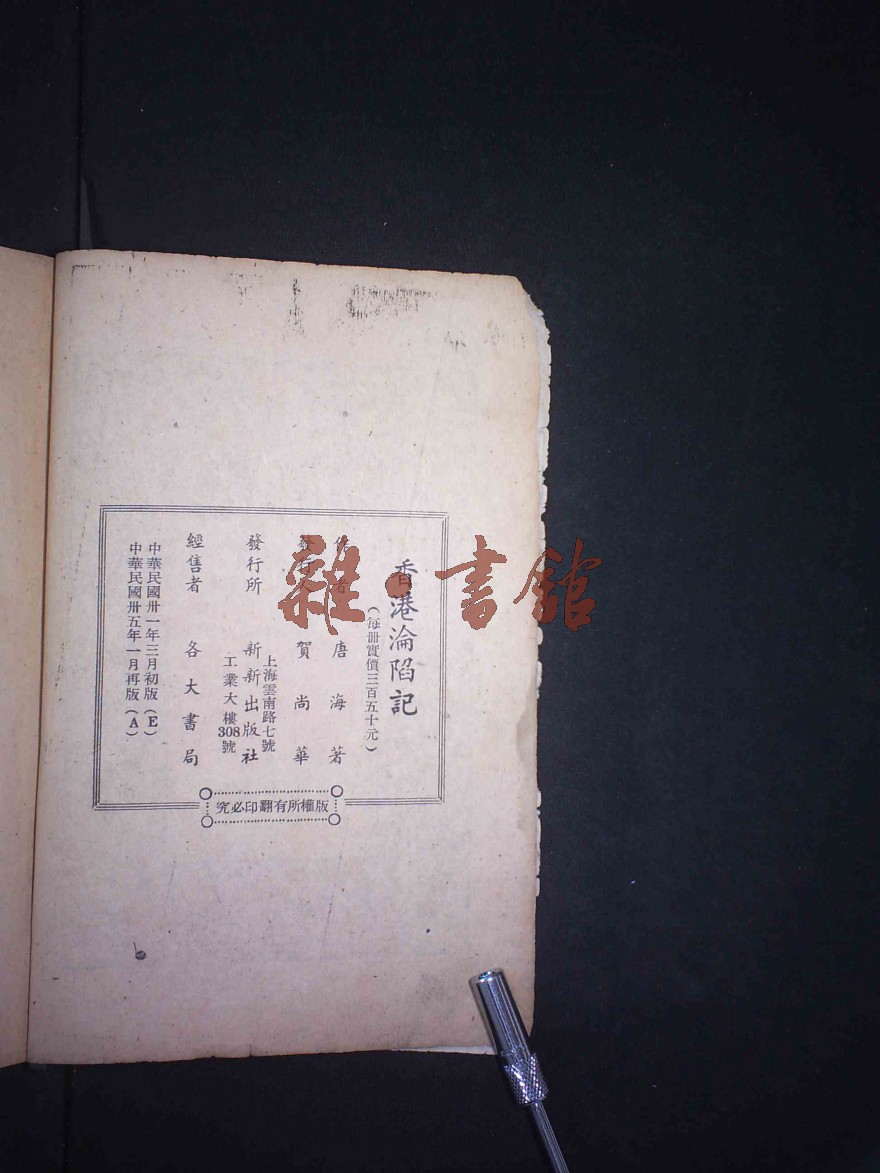 香港淪陷記
(每冊實價三百五十元)
作者 唐海著
發行人 賀尚華
發行所 新新出版社
上海雲南路七號
工業大樓308號
經售者 各大書局
中華民國卅一年三月初版(E)
中華民國卅五年一月再版(A)
版權所有翻印必究
雜·書館